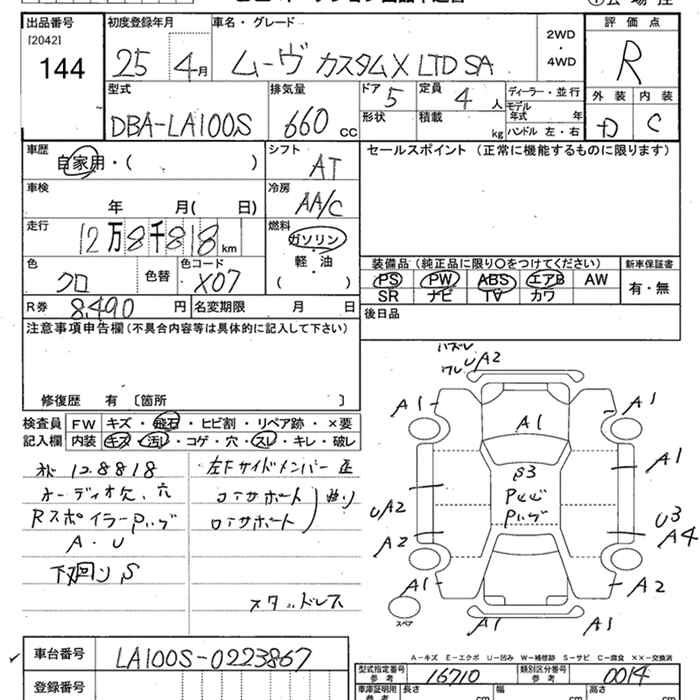 出品番号
[2042]
144
初度登録年月
25 4月
車名・グレード
ムーヴ カスタムX LTD SA
2WD
・
4WD
評価点
R
外装 内装
D C
型式
DBA-LA100S
排気量
660 cc
ドア 5
形状
定員 4 人
積載 kg
ディーラー・並行
モデル
年式 年
ハンドル 左・右
車歴
自家用・( )
シフト
AT
車検
年 月( 日)
冷房
AA/C
走行
12万8千818km
燃料
ガソリン
・
軽・油
( )
色
クロ
色替
色コード
X07
R券 8,490円
名変期限 月 日
セールスポイント(正常に機能するものに限ります)
装備品(純正品に限り○をつけてください)
PS PW ABS エアB AW
SR ナビ TV カワ
新車保証書
有・無
後日品
注意事項申告欄(不具合内容等は具体的に記入して下さい)
修復歴 有〔箇所 〕
検査員
記入欄
FW キズ・飛石・ヒビ割・リペア跡・×要
内装 キズ・汚レ・コゲ・穴・スレ・キレ・破レ
128818
オーディオ欠、穴
RスポイラーPハゲ
A・U
下廻りS
左Fサイドメンバー
コアサポート
ロアサポート
曲り
スタッドレス
ハズレ
ワレ UA2
A1
A1
A1
A1
B3
Pハゲ
UA2
U3
A2
A4
A1
A2
A1
A1
スペア
A−キズ E−エクボ U−凹み W−補修跡 S−サビ C−腐食 ××−交換済
車台番号
LA100S-0223867
登録番号
型式指定番号
参考
16710
類別区分番号
参考
0014
車庫証明用
参考
長さ cm
幅 cm
高さ cm